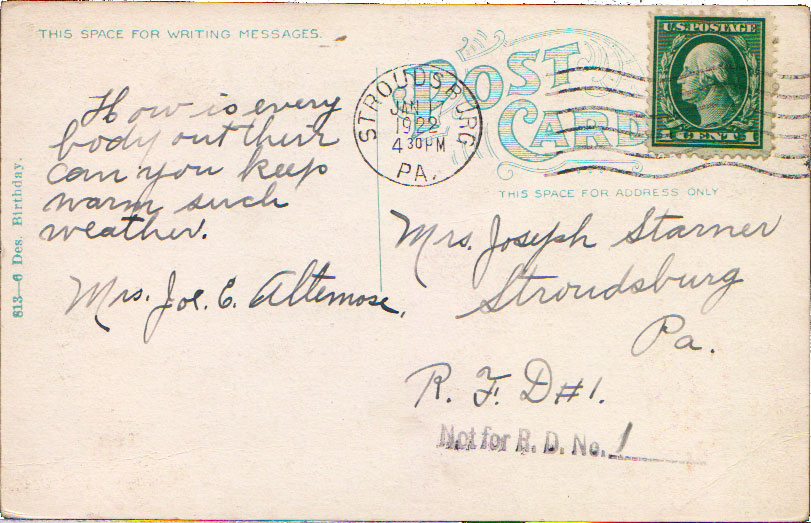 THIS SPACE FOR WRITING MESSAGES.
How is every
body out their
can you keep
warm such
weather.
Mrs. Joe. E. Altemose.
813—6 Des. Birthday.
POST
CARD
STROUDSBURG
JAN 17
1922
4 30 PM
PA.
U.S. POSTAGE
1 CENT 1
THIS SPACE FOR ADDRESS ONLY
Mrs. Joseph Starner
Stroudsburg
Pa.
R. F. D #1.
Not for R. D. No. 1